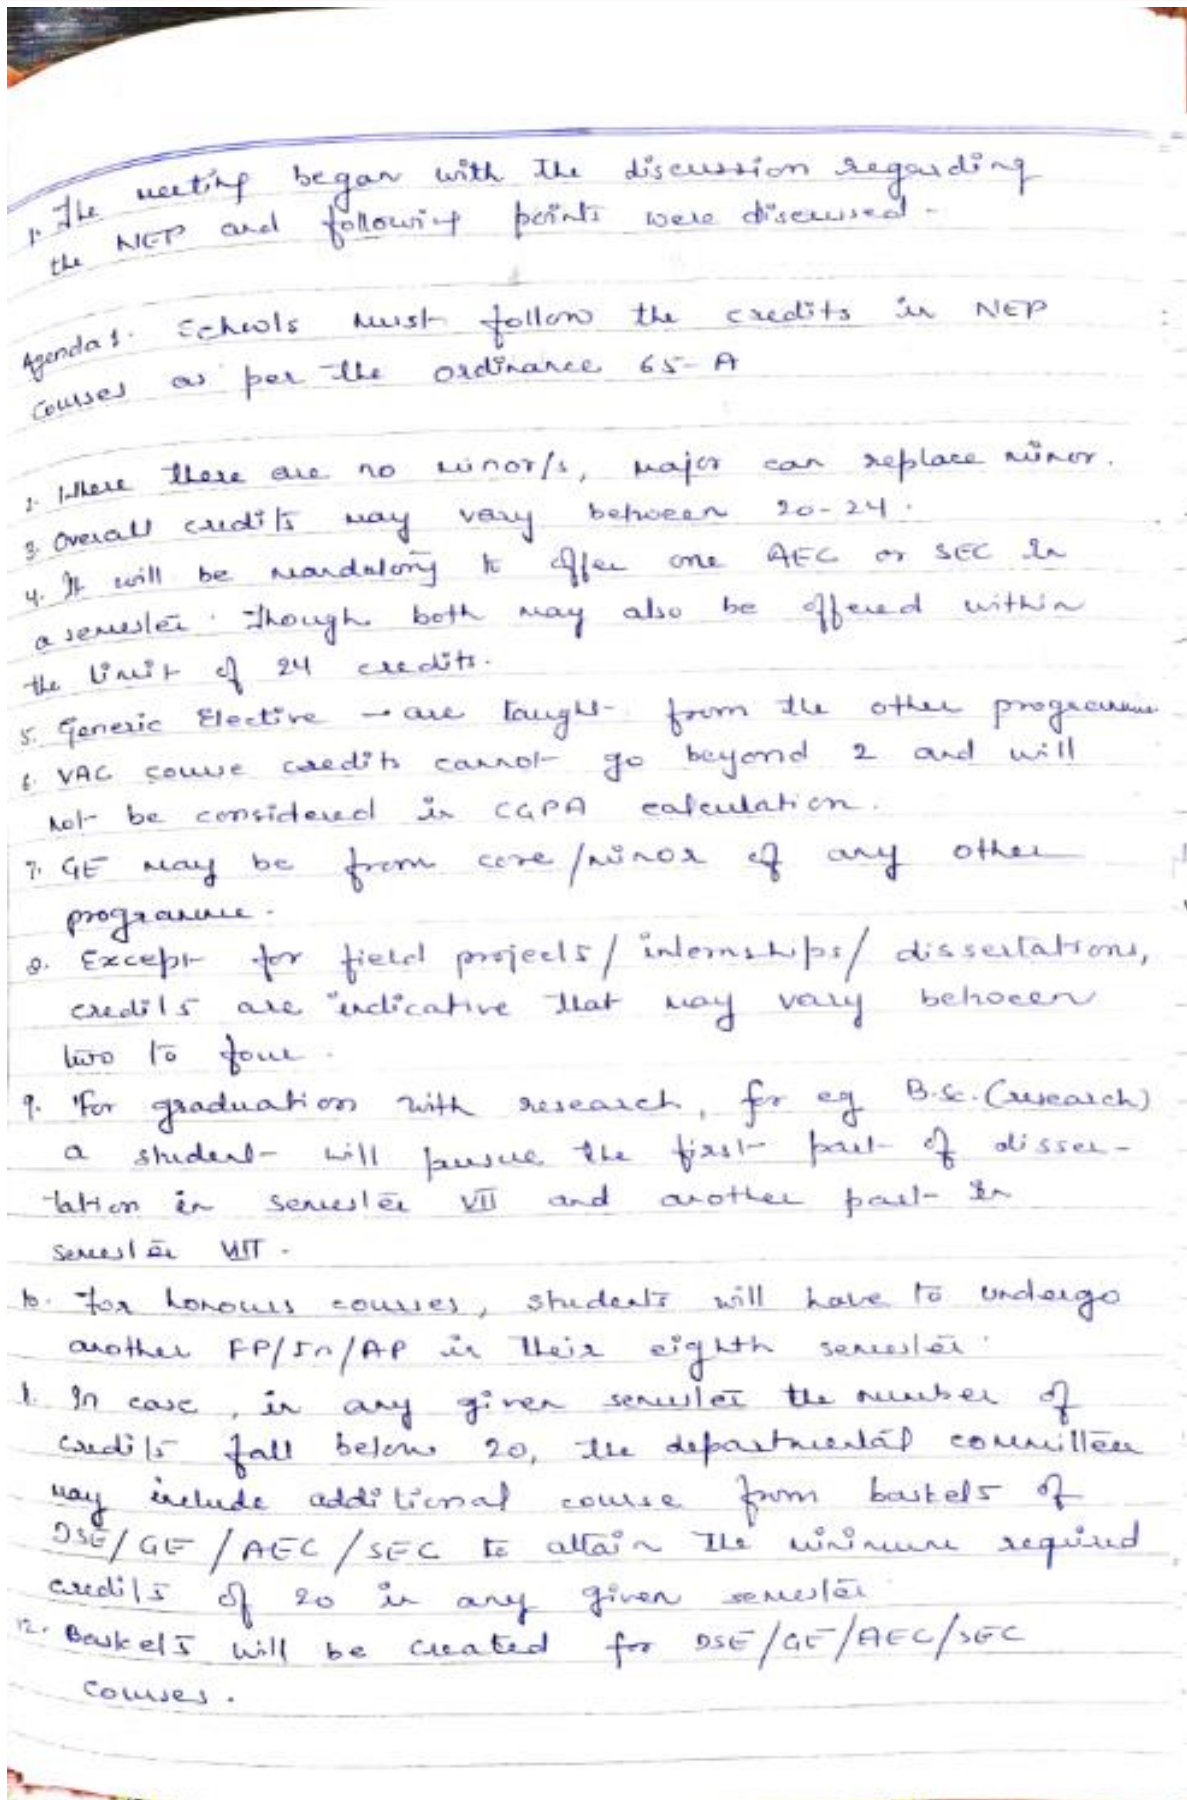 1. The meeting began with the discussion regarding
the NEP and following points were discussed -
Agenda 1. Schools must follow the credits in NEP
courses as per the ordinance 65-A
2. Where there are no minor/s, major can replace minor.
3. Overall credits may vary between 20-24.
4. It will be mandatory to offer one AEC or SEC in
a semester. Though both may also be offered within
the limit of 24 credits.
5. Generic Elective → are taught from the other programme
6. VAC course credits cannot go beyond 2 and will
not be considered in CGPA calculation.
7. GE may be from core/minor of any other
programme.
8. Except for field projects/internships/dissertations,
credits are indicative that may vary between
two to four.
9. For graduation with research, for eg B.Sc. (research)
a student will pursue the first part of disser-
tation in semester VII and another part in
semester VIII.
10. For honours courses, students will have to undergo
another FP/In/AP in their eighth semester.
1. In case, in any given semester the number of
credits fall below 20, the departmental committee
may include additional course from baskets of
DSE/GE/AEC/SEC to attain the minimum required
credits of 20 in any given semester.
12. Baskets will be created for DSE/GE/AEC/SEC
courses.